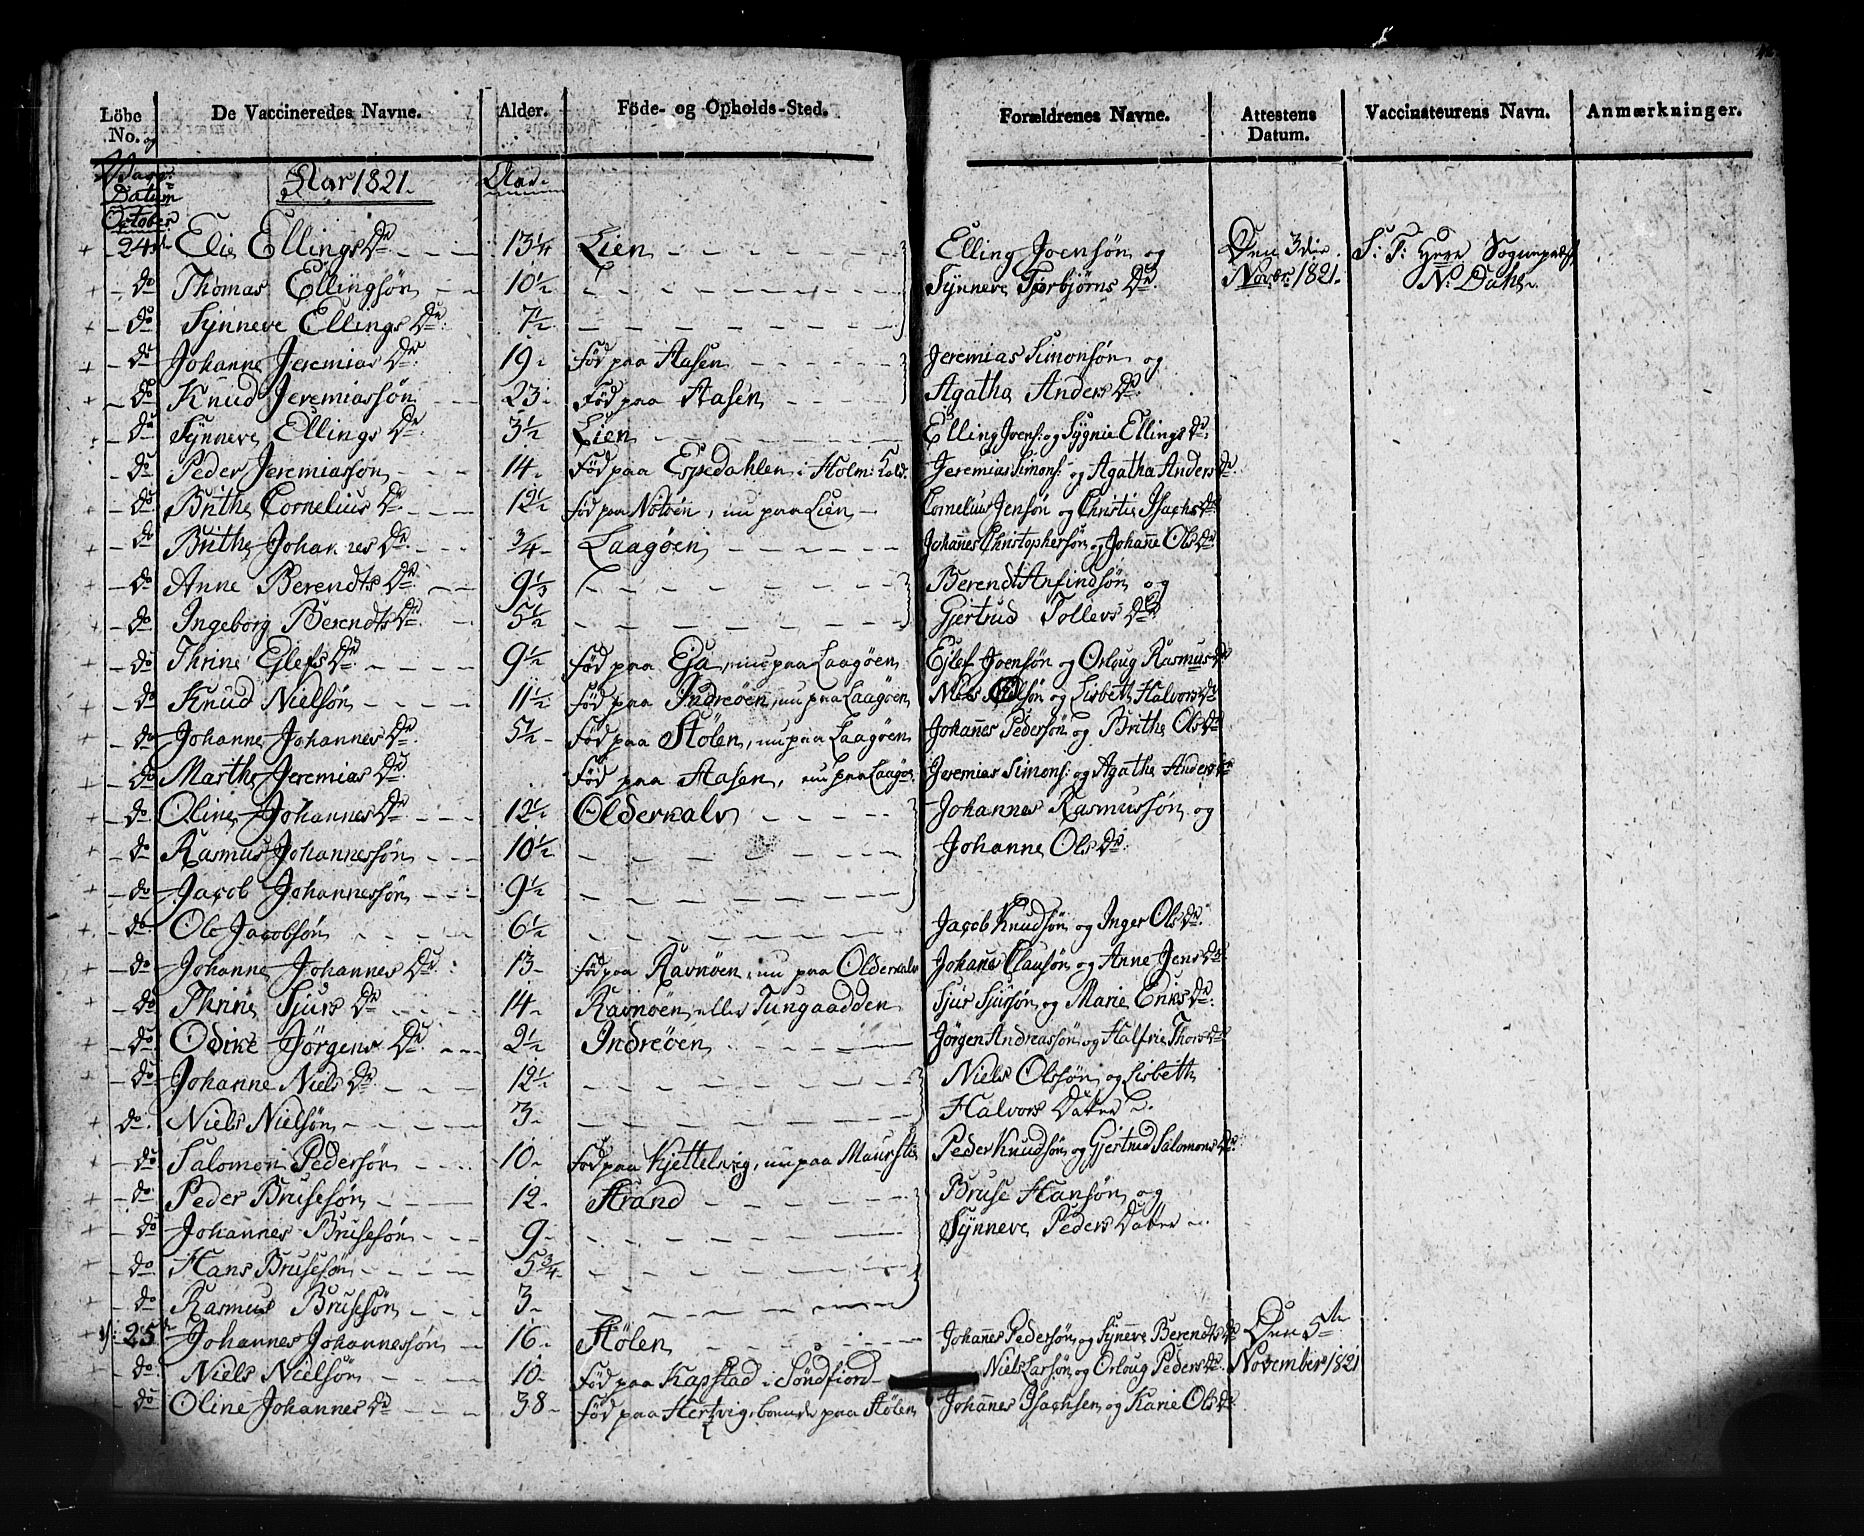 Löbe No. og De Vaccineredes Navne. Alder. Föde- og Opholds-Sted. Forældrenes Navne. Attestens Datum. Vaccinateurens Navn. Anmærkninger.
Datum Aar 1821.
October
24de Elie Ellings Dr 13 1/4 Lien Elling Joensön og Den 3die S: T: Herr Sogneprest
do Thomas Ellingsön 10 1/2 Synneve Torbjörns Dr. Novbr. 1821. N: Dahl
do Synneve Ellings Dr: 7 1/2
do Johanne Jeremias Dr. 19 Föd paa Aasen Jeremias Simonsön og
do Knud Jeremiassön 23 Föd paa Aasen Agatha Anders Dr.
do Synneve Ellings Dr. 3 1/2 Lien Elling Joens: og Sygnie Ellings Dr:
do Peder Jeremiasson 14 Föd paa Espedahlen i Holm: Jeremias Simons: og Agatha Anders Dr.
do Brithe Cornelius Dr. 12 1/2 föd paa Notöen, nu paa Lien Cornelius Jensön og Christie Isachs Dr
do Brithe Johannes Dr. 3/4 Laagöen Johannes Christophersön og Johanne Ols Dr
do Anne Berendts Dr. 9 1/2 Berendt Anfindsön og
do Ingeborg Berendts Dr. 5 1/2 Gjertrud Tollevs Dr
do Thrine Ejlefs Dr. 9 1/2 Föd paa Eja, nu paa Laagöen Ejlef Joensön og Orloug Rasmus Dr
do Knud Nielsön 11 1/2 Föd paa Indreöen, nu paa Laagöen Niels Olsön og Lisbeth Halvors Dr
do Johanne Johannes Dr. 5 1/2 Föd paa Stölen, nu paa Laagöen Johannes Pedersön og Brithe Ols Dr
do Marthe Jeremias Dr. Föd paa Aasen, nu paa Laagö Jeremias Simons: og Agathe Anders Dr
do Oline Johannes Dr. 12 1/2 Olderkalv Johannes Rasmussön og
do Rasmus Johannessön 10 1/2 Johanne Ols Dr.
do Jacob Johannessön 9 1/2
do Ole Jacobsön 6 1/2 Jacob Knudsön og Inger Ols Dr.
do Johanne Johannes Dr. 13 föd paa Ravnöen, nu paa Olderkalv Johanes Clausön og Anne Jens Dr
do Thrine Sjurs Dr 14 Ravnöen eller Tungaadden Sjur Sjursön og Marie Eriks Dr.
do Odike Jörgens Dr. 2 1/2 Indreöen Jörgen Andreassön og Halfrie Thors Dr
do Johanne Niels Dr. 12 1/2 Niels Olssön og Lisbeth
do. Niels Nielsön 3 Halvors Datter
do Salomon Pedersön 10 Föd paa Kjettelvig, nu paa Maurstie Peder Knudsön og Gjertrud Salomons Dr.
do Peder Brusesön 12 Strand Bruse Hansön og
do Johannes Brusesön 9 Synneve Peders Datter
do Hans Brusesön 5 3/4
do Rasmus Brusesön 3
25de Johannes Johannessön 16 Stölen Johannes Pedersön og Synneve Berendts Dr Den 5te
do Niels Nielsön 10 Föd paa Kapstad i Söndfiord Niels Larsön og Orloug Peders Dr. November 1821
do Oline Johannes Dr 38 Föd paa Hertvig, boende paa Stölen Johannes Isachsen og Karie Ols Dr.